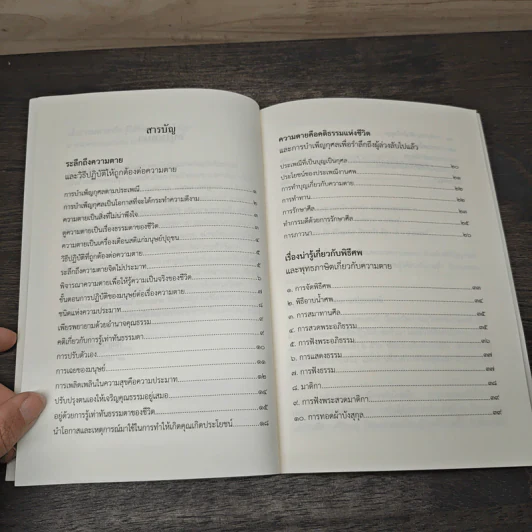 สารบัญ
ระลึกถึงความตาย
และวิธีปฏิบัติให้ถูกต้องต่อความตาย
การบำเพ็ญกุศลตามประเพณี ๑
การบำเพ็ญกุศลเป็นโอกาสที่จะได้กระทำความดีงาม ๒
ความตายเป็นสิ่งที่ไม่น่าพึงใจ ๓
ดูความตายเป็นเรื่องธรรมดาของชีวิต ๓
ความตายเป็นเครื่องเตือนสติแก่มนุษย์ปุถุชน ๔
วิธีปฏิบัติที่ถูกต้องต่อความตาย ๕
ระลึกถึงความตายจิตไม่ประมาท ๕
พิจารณาความตายเพื่อให้รู้ความเป็นจริงของชีวิต ๖
ขั้นตอนการปฏิบัติของมนุษย์ต่อเรื่องความตาย ๗
ชนิดแห่งความประมาท ๘
เพียรพยายามด้วยอำนาจคุณธรรม ๙
คติเกี่ยวกับการรู้เท่าทันธรรมดา ๙
การปรับตัวเอง ๑๐
การเฉยของมนุษย์ ๑๑
การเพลิดเพลินในความสุขคือความประมาท ๑๒
ปรับปรุงตนเองให้เจริญคุณธรรมอยู่เสมอ ๑๔
อยู่ด้วยการรู้เท่าทันธรรมดาของชีวิต ๑๕
นำโอกาสและเหตุการณ์มาใช้ในการทำให้เกิดคุณเกิดประโยชน์ ๑๘
ความตายคือคติธรรมแห่งชีวิต
และการบำเพ็ญกุศลเพื่อรำลึกถึงผู้ล่วงลับไปแล้ว
ประเพณีที่เป็นบุญเป็นกุศล ๒๐
ประโยชน์ของประเพณีงานศพ ๒๑
การทำบุญเกี่ยวกับความตาย ๒๒
การทำทาน ๒๒
การรักษาศีล ๒๓
ทำกรรมดีด้วยการรักษาศีล ๒๕
การภาวนา ๒๖
เรื่องน่ารู้เกี่ยวกับพิธีศพ
และพุทธภาษิตเกี่ยวกับความตาย
๑. การจัดพิธีศพ ๓๓
๒. พิธีอาบน้ำศพ ๓๔
๓. การสมาทานศีล ๓๕
๔. การสวดพระอภิธรรม ๓๕
๕. การฟังพระอภิธรรม ๓๖
๖. การแสดงธรรม ๓๗
๗. การฟังธรรม ๓๗
๘. มาติกา ๓๘
๙. การฟังพระสวดมาติกา ๓๘
๑๐. การทอดผ้าบังสุกุล ๓๙